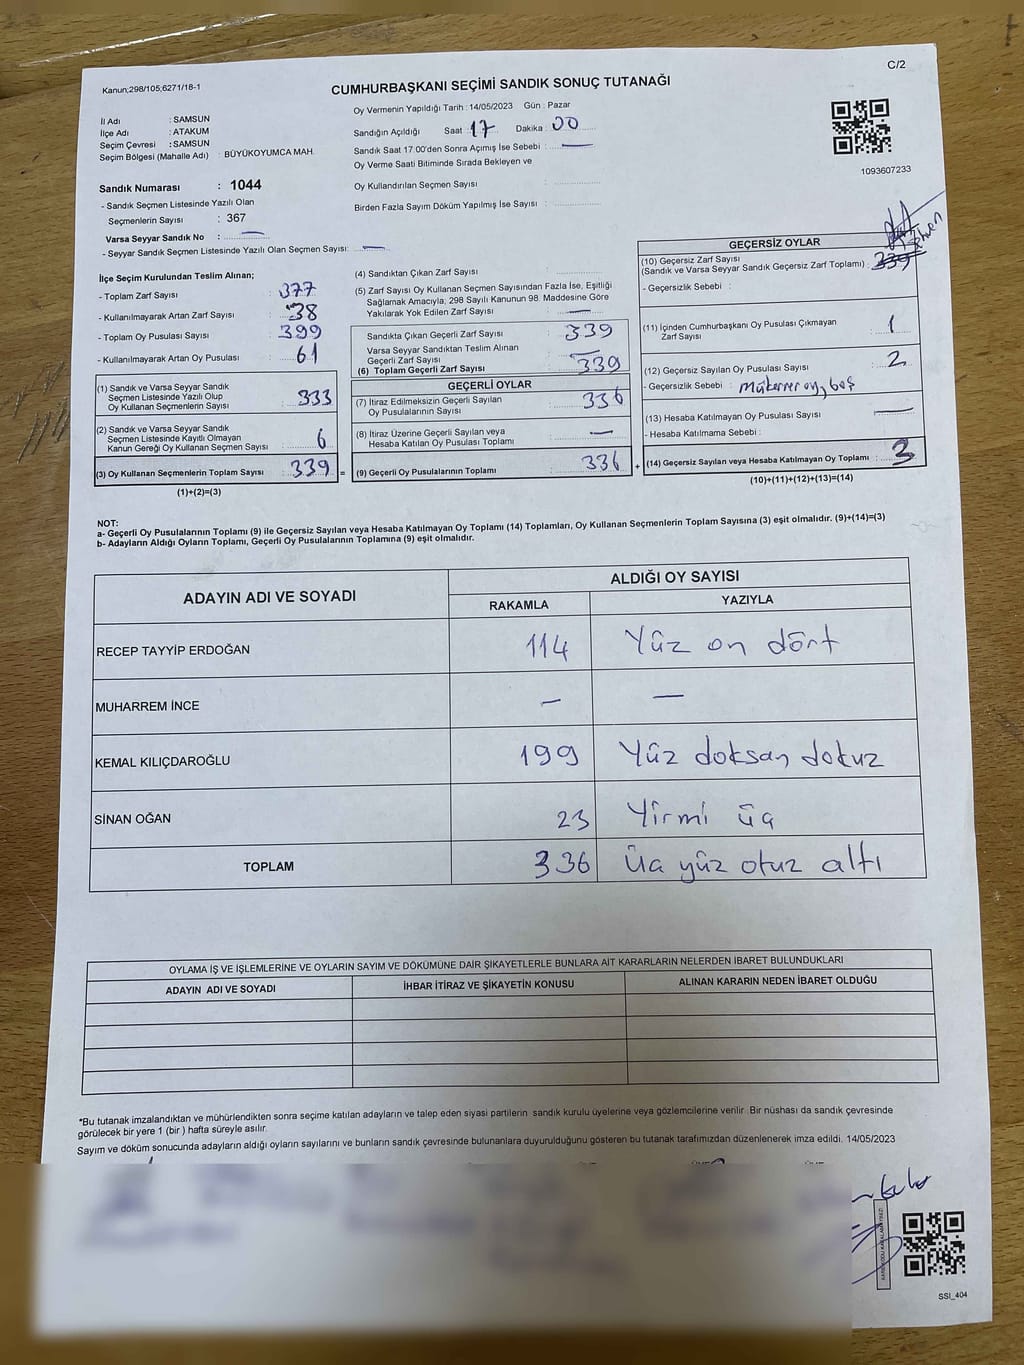 C/2
Kanun;298/105;6271/18-1
CUMHURBAŞKANI SEÇİMİ SANDIK SONUÇ TUTANAĞI
Oy Vermenin Yapıldığı Tarih : 14/05/2023 Gün : Pazar
İl Adı : SAMSUN
İlçe Adı : ATAKUM
Seçim Çevresi : SAMSUN
Seçim Bölgesi (Mahalle Adı) : BÜYÜKOYUMCA MAH.
Sandığın Açıldığı Saat 17 Dakika : 00
Sandık Saat 17.00'den Sonra Açımış İse Sebebi : —
Oy Verme Saati Bitiminde Sırada Bekleyen ve
Oy Kullandırılan Seçmen Sayısı :
Birden Fazla Sayım Döküm Yapılmış İse Sayısı :
1093607233
Sandık Numarası : 1044
- Sandık Seçmen Listesinde Yazılı Olan
Seçmenlerin Sayısı : 367
Varsa Seyyar Sandık No : —
- Seyyar Sandık Seçmen Listesinde Yazılı Olan Seçmen Sayısı: —
İlçe Seçim Kurulundan Teslim Alınan;
- Toplam Zarf Sayısı : 377
- Kullanılmayarak Artan Zarf Sayısı : 38
- Toplam Oy Pusulası Sayısı : 399
- Kullanılmayarak Artan Oy Pusulası : 61
(1) Sandık ve Varsa Seyyar Sandık
Seçmen Listesinde Yazılı Olup
Oy Kullanan Seçmenlerin Sayısı : 333
(2) Sandık ve Varsa Seyyar Sandık
Seçmen Listesinde Kayıtlı Olmayan
Kanun Gereği Oy Kullanan Seçmen Sayısı : 6
(3) Oy Kullanan Seçmenlerin Toplam Sayısı : 339 =
(1)+(2)=(3)
(4) Sandıktan Çıkan Zarf Sayısı :
(5) Zarf Sayısı Oy Kullanan Seçmen Sayısından Fazla İse, Eşitliği
Sağlamak Amacıyla; 298 Sayılı Kanunun 98. Maddesine Göre
Yakılarak Yok Edilen Zarf Sayısı : —
Sandıkta Çıkan Geçerli Zarf Sayısı : 339
Varsa Seyyar Sandıktan Teslim Alınan
Geçerli Zarf Sayısı : —
(6) Toplam Geçerli Zarf Sayısı : 339
GEÇERLİ OYLAR
(7) İtiraz Edilmeksizin Geçerli Sayılan
Oy Pusulalarının Sayısı : 336
(8) İtiraz Üzerine Geçerli Sayılan veya
Hesaba Katılan Oy Pusulası Toplamı : —
(9) Geçerli Oy Pusulalarının Toplamı : 336 +
GEÇERSİZ OYLAR
(10) Geçersiz Zarf Sayısı
(Sandık ve Varsa Seyyar Sandık Geçersiz Zarf Toplamı) : 339
- Geçersizlik Sebebi :
(11) İçinden Cumhurbaşkanı Oy Pusulası Çıkmayan
Zarf Sayısı : 1
(12) Geçersiz Sayılan Oy Pusulası Sayısı : 2
- Geçersizlik Sebebi : mükerrer oy, boş
(13) Hesaba Katılmayan Oy Pusulası Sayısı : —
- Hesaba Katılmama Sebebi :
(14) Geçersiz Sayılan veya Hesaba Katılmayan Oy Toplamı : 3
(10)+(11)+(12)+(13)=(14)
NOT:
a- Geçerli Oy Pusulalarının Toplamı (9) ile Geçersiz Sayılan veya Hesaba Katılmayan Oy Toplamı (14) Toplamları, Oy Kullanan Seçmenlerin Toplam Sayısına (3) eşit olmalıdır. (9)+(14)=(3)
b- Adayların Aldığı Oyların Toplamı, Geçerli Oy Pusulalarının Toplamına (9) eşit olmalıdır.
ADAYIN ADI VE SOYADI ALDIĞI OY SAYISI
RAKAMLA YAZIYLA
RECEP TAYYİP ERDOĞAN 114 Yüz on dört
MUHARREM İNCE — —
KEMAL KILIÇDAROĞLU 199 Yüz doksan dokuz
SİNAN OĞAN 23 Yirmi üç
TOPLAM 336 Üç yüz otuz altı
OYLAMA İŞ VE İŞLEMLERİNE VE OYLARIN SAYIM VE DÖKÜMÜNE DAİR ŞİKAYETLERLE BUNLARA AİT KARARLARIN NELERDEN İBARET BULUNDUKLARI
ADAYIN ADI VE SOYADI İHBAR İTİRAZ VE ŞİKAYETİN KONUSU ALINAN KARARIN NEDEN İBARET OLDUĞU
*Bu tutanak imzalandıktan ve mühürlendikten sonra seçime katılan adayların ve talep eden siyasi partilerin sandık kurulu üyelerine veya gözlemcilerine verilir. Bir nüshası da sandık çevresinde
görülecek bir yere 1 (bir ) hafta süreyle asılır.
Sayım ve döküm sonucunda adayların aldığı oyların sayılarını ve bunların sandık çevresinde bulunanlara duyurulduğunu gösteren bu tutanak tarafımızdan düzenlenerek imza edildi. 14/05/2023
SSI_404